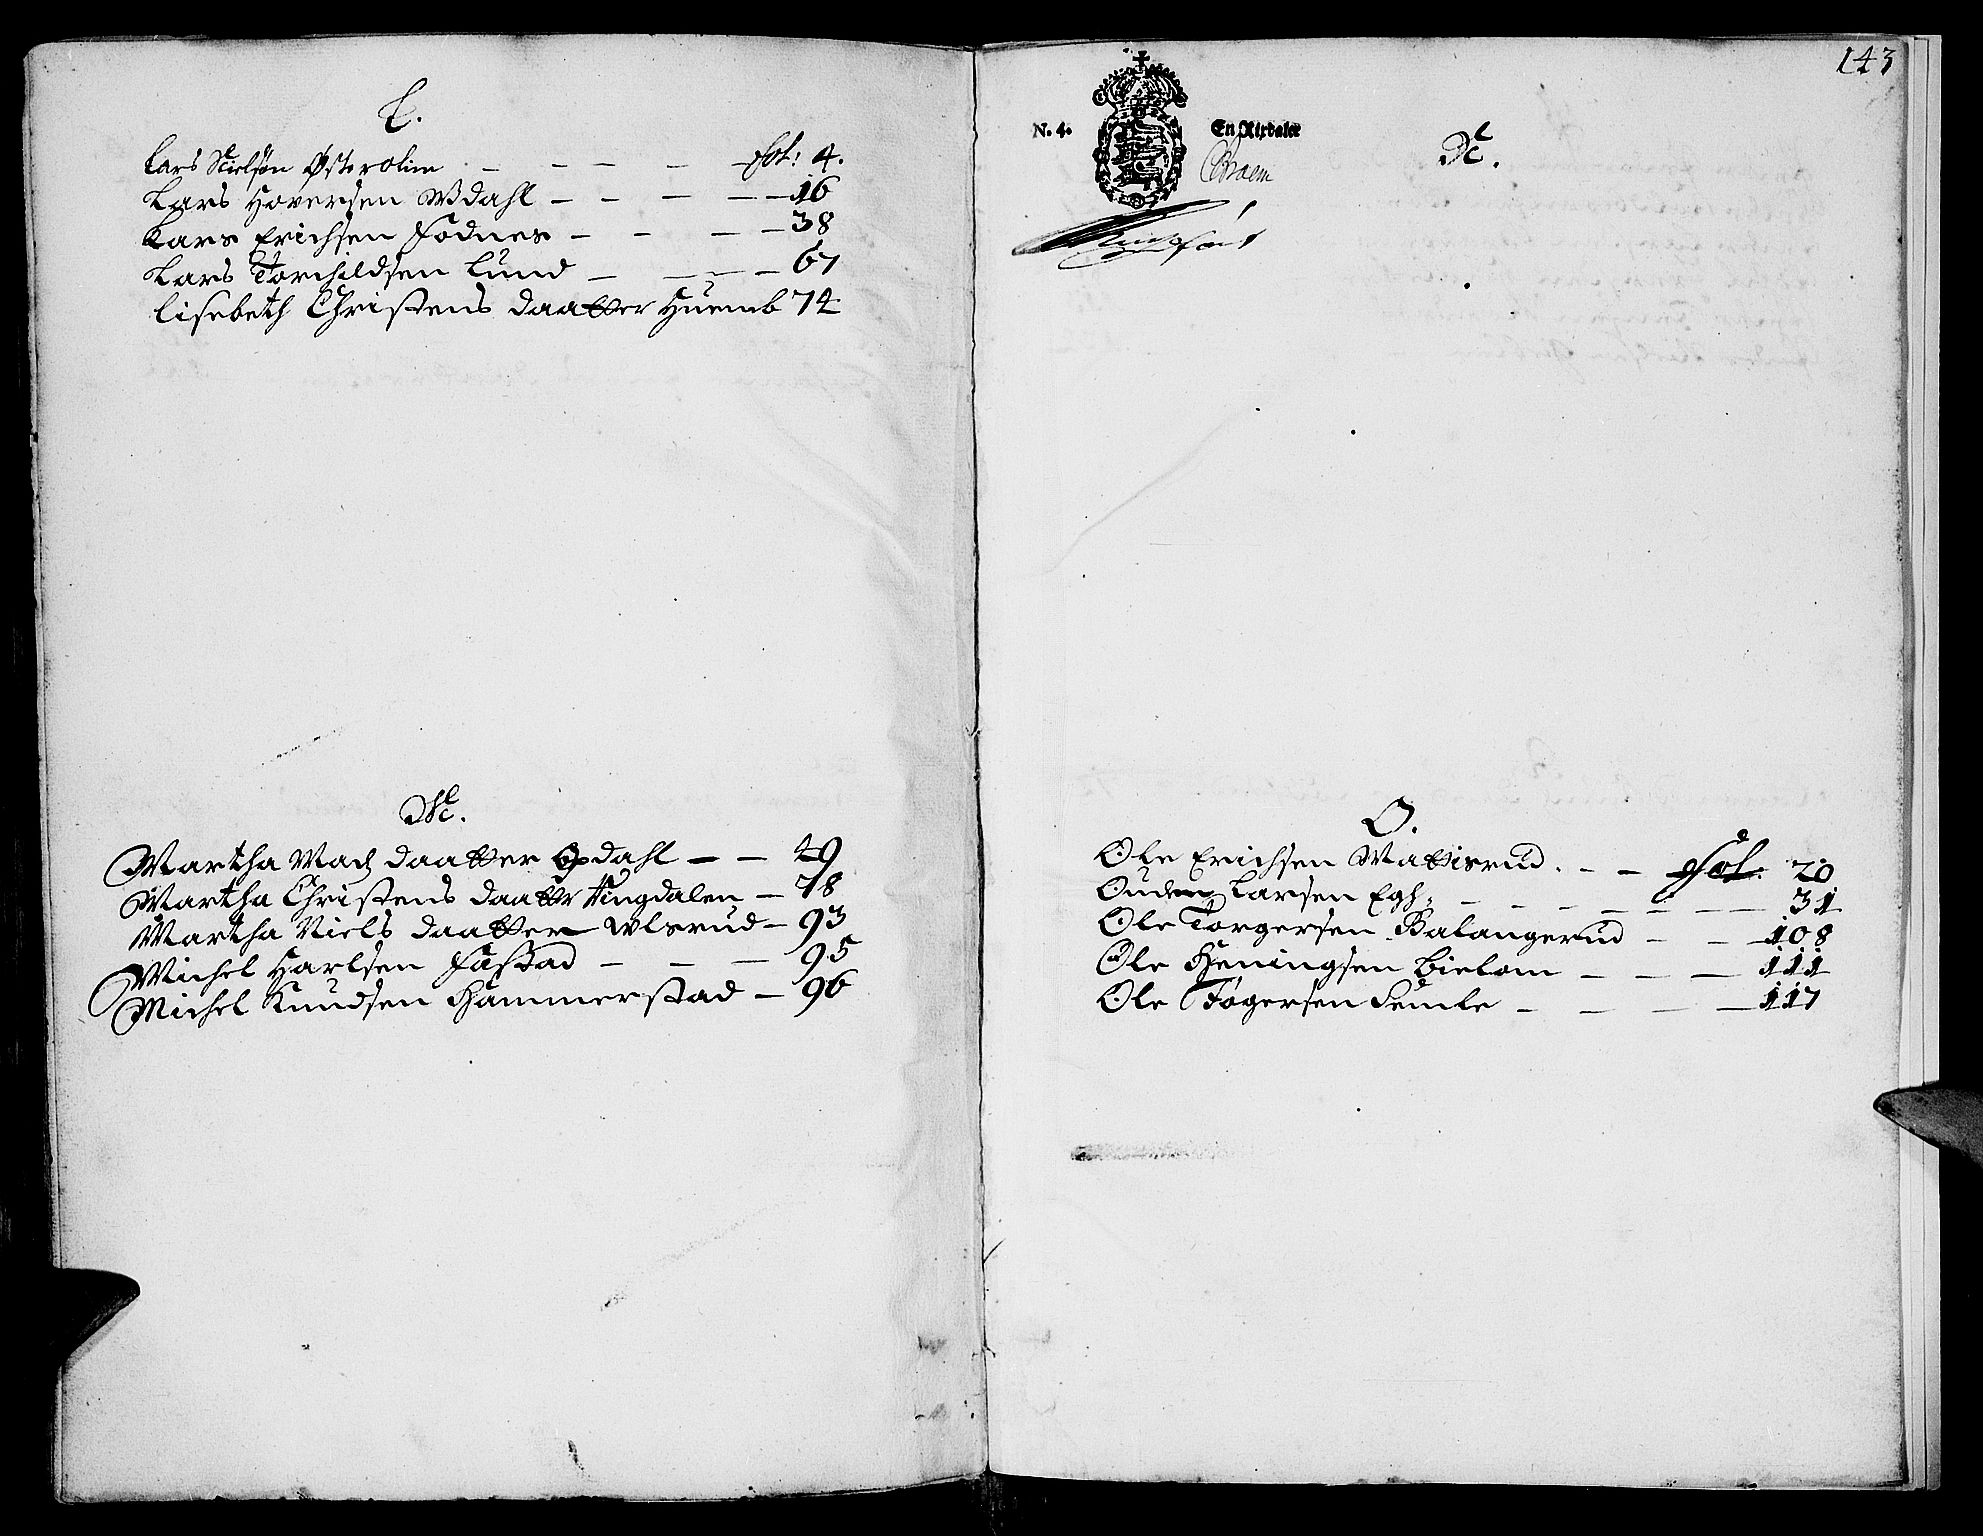 L.
Lars Nielsøn Østerolim - - - - fol: 4.
Lars Hoversen Wdahl - - - - 16
Lars Erichsen Fodnes - - - - 38
Lars Torchildsen Lund - - - - 67
Lisebeth Christens daatter Huemb 74
M.
Martha Mads daatter Opdahl - - 49
Martha Christens daatter Tingdalen - 78
Martha Niels daatter Wlsrud - 93
Michel Harlsen Faßtad - - - 95
Michel Knudsen Hammerstad - 96
143
N. 4. En Rixdaler
Braem
N.
O.
Ole Erichsen Mattisrud. - - fol: 20
Ouden Larsen Egh: - - - - - - 31
Ole Torgersen Balangerud - - 108
Ole Heningsen Bielom - - - 111
Ole Togersen Semle - - - - 117